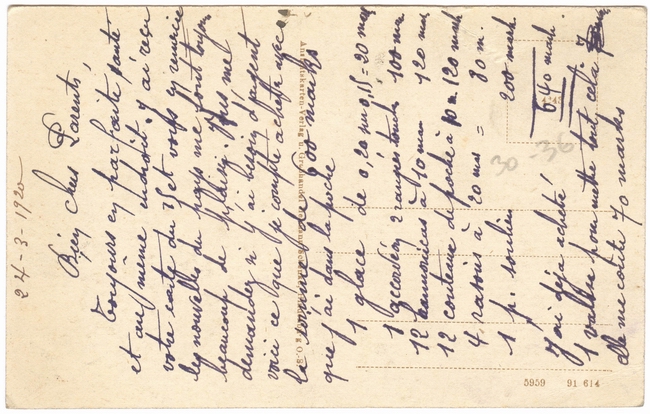 24-3-1920
Bien chers Parents
toujours en parfaite santé
et au même endroit. J'ai reçu
votre carte du et vous remercie
les nouvelles du pays me font toujours
beaucoup de plaisir. Vous me
demandez si j'ai besoin d'argent
voici ce que je compte acheter avec
la de 900 marks
que j'ai dans la poche
1 glace de 0,20 sur 0,15 = 20 marks
1 accordéon 2 rangées 100 mar
12 harmonicas à 10 mar 120 mar
12 couteaux de poche à 10 m 120 mark
4 rasoirs à 20 ms = 80 m.
1 p. soulier 200 mark
640 mark
J'ai déjà acheté
1 valise pour mettre tout cela
elle me coûte 70 marks
30 - 36
Ansichtskarten-Verlag u.
5959 91 614